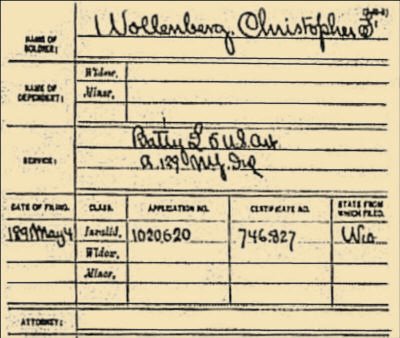 (3-8-3)
NAME OF SOLDIER: Wollenberg, Christopher F.
NAME OF DEPENDENT: Widow,
Minor,
SERVICE: Batty L 5 U.S. Art
A. 189 N.Y. Inf
DATE OF FILING. CLASS. APPLICATION NO. CERTIFICATE NO. STATE FROM WHICH FILED.
189 May 4 Invalid, 1020,620 746,827 Wis
Widow,
Minor,
ATTORNEY: